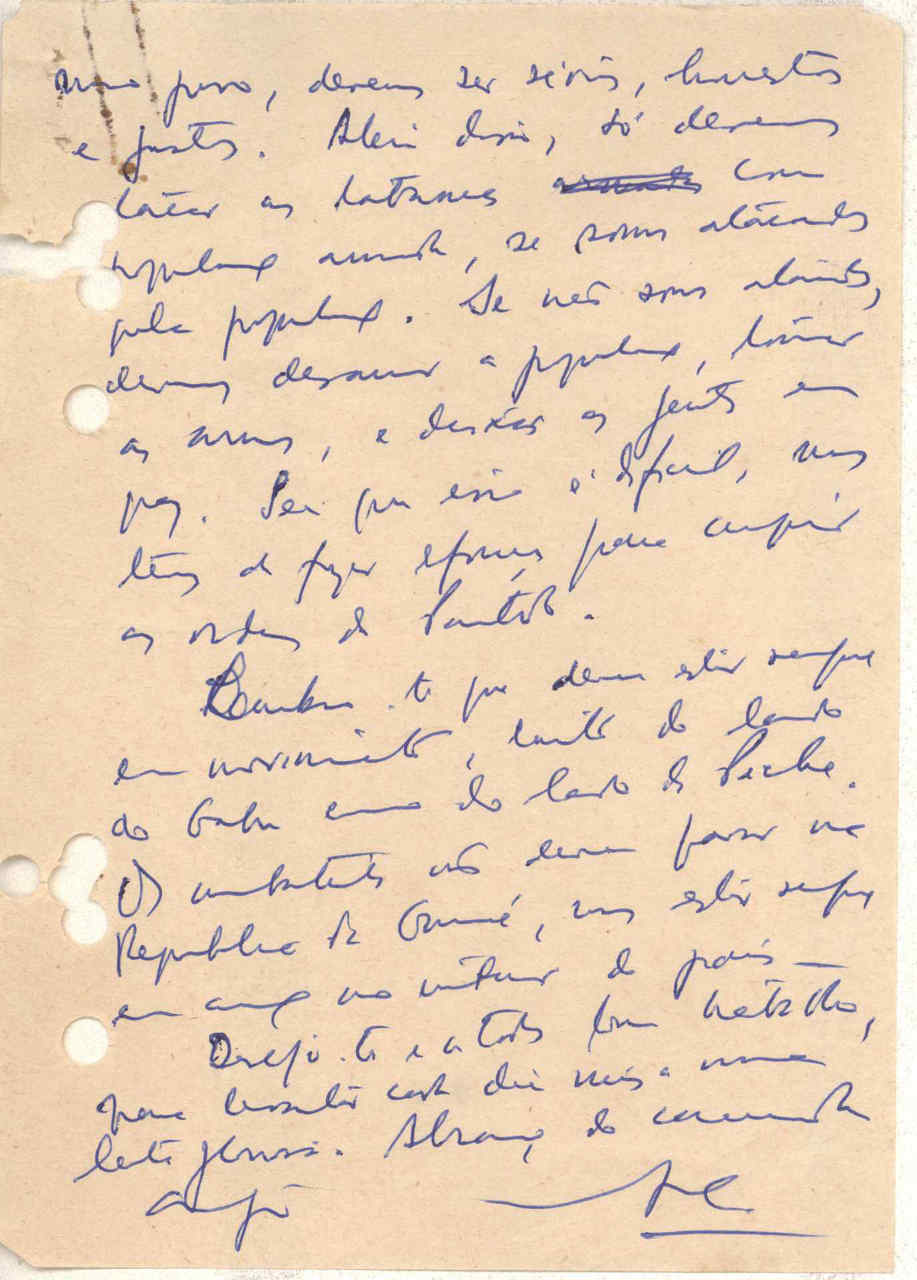 nosso povo, devemos ser sérios, honestos
e justos. Além disso, só devemos
fazer as batalhas com
população armada, se somos atacados
pela população. Se não somos atacados,
devemos desarmar a população, tomar
as armas, e deixar as gentes em
paz. Sei que isso é difícil, mas
temos de fazer esforços para cumprir
as ordens do Partido.
Lembra-te que devem estar sempre
em movimento, tanto do lado
do Gabu como do lado de Pitche.
Os combatentes não devem parar na
República da Guiné, mas estar sempre
em acção no interior do país —
Desejo-te e a todos bom trabalho,
para levantar cada dia mais a nossa
luta gloriosa. Abraço do camarada
amigo